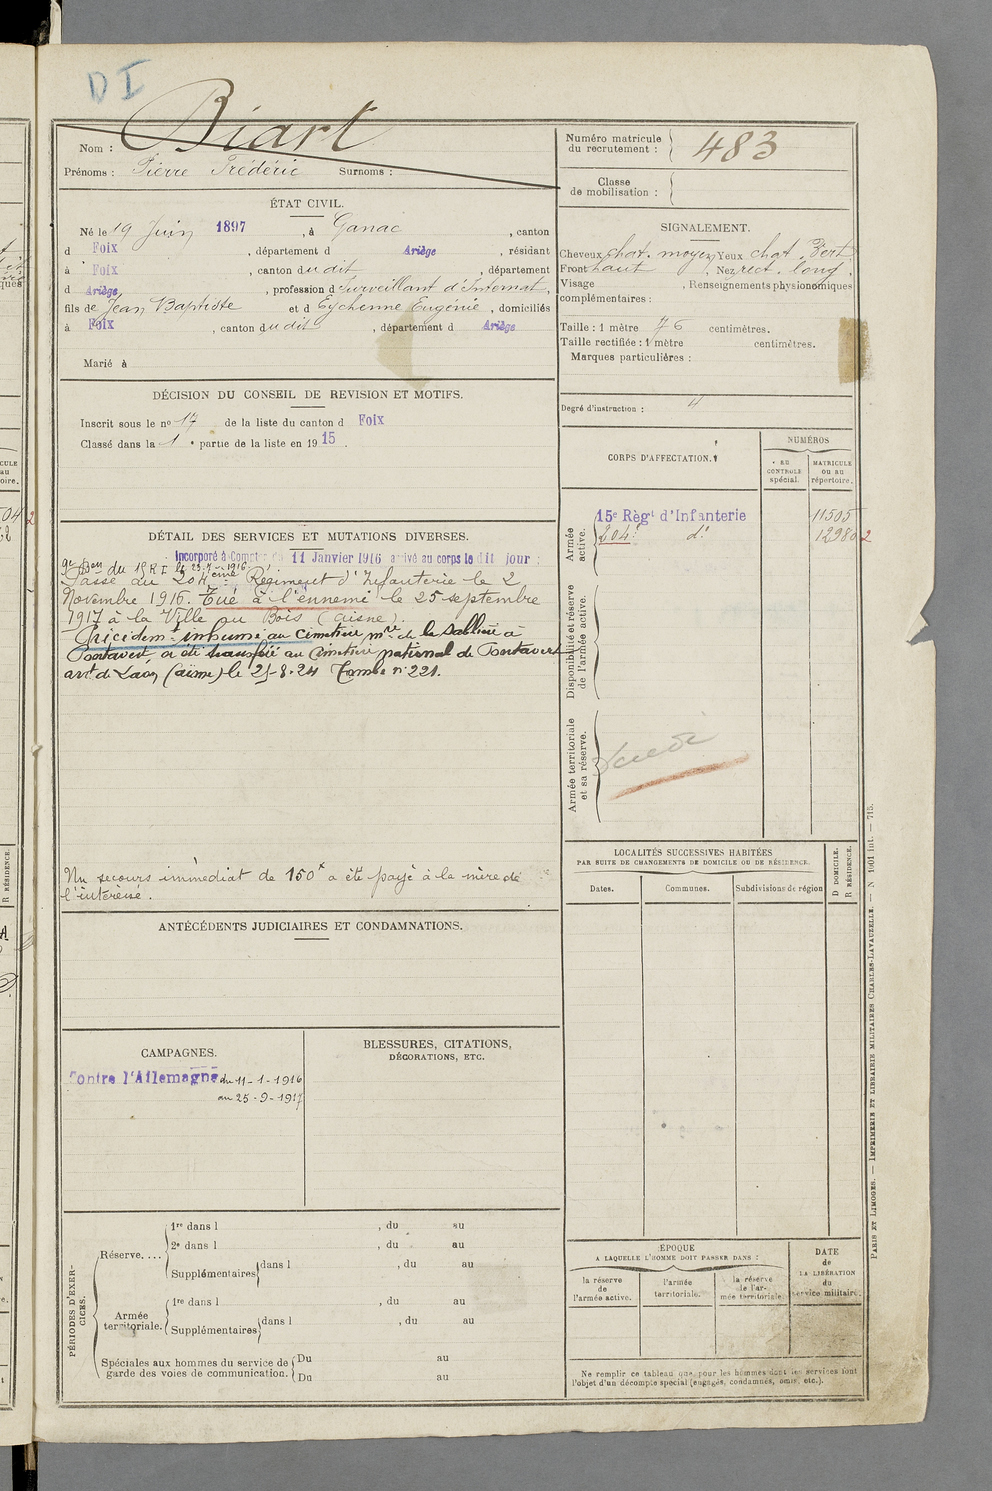 D I
Nom : Biart
Prénoms : Pierre Frédéric Surnoms :
ÉTAT CIVIL.
Né le 19 Juin 1897, à Ganac, canton
d Foix, département d Ariège, résidant
à Foix, canton du dit, département
d Ariège, profession d surveillant d'Internat,
fils de Jean Baptiste et d Eychenne Eugénie, domiciliés
à Foix, canton du dit, département d Ariège
Marié à
DÉCISION DU CONSEIL DE REVISION ET MOTIFS.
Inscrit sous le no 17 de la liste du canton d Foix
Classé dans la 1 e partie de la liste en 19 15.
DÉTAIL DES SERVICES ET MUTATIONS DIVERSES.
Incorporé à Compter du 11 Janvier 1916 arrivé au corps le dit jour
9e Bon du 15 R I le 23-7-1916.
Passé au 204ème Régiment d'Infanterie le 2
Novembre 1916. Tué à l'ennemi le 25 septembre
1917 à la Ville au Bois (Aisne).
Précédemt inhumé au cimetière mre de la Sablière à
Pontavert, a été transféré au Cimetière national de Pontavert
arrt de Laon (Aisne) le 25-8-24 Tombe n° 221.
Un secours immédiat de 150f a été payé à la mère de
l'intéressé.
ANTÉCÉDENTS JUDICIAIRES ET CONDAMNATIONS.
CAMPAGNES.
Contre l'Allemagne du 11-1-1916
au 25-9-1917
BLESSURES, CITATIONS,
DÉCORATIONS, ETC.
PÉRIODES D'EXERCICES.
Réserve....
1re dans l , du au
2e dans l , du au
Supplémentaires dans l , du au
Armée
territoriale.
1re dans l , du au
Supplémentaires dans l , du au
Spéciales aux hommes du service de
garde des voies de communication.
Du au
Du au
Numéro matricule
du recrutement : 483
Classe
de mobilisation :
SIGNALEMENT.
Cheveux chat. moyen Yeux chat. Vert
Front haut, Nez rect. long,
Visage , Renseignements physionomiques
complémentaires :
Taille : 1 mètre 76 centimètres.
Taille rectifiée : 1 mètre centimètres.
Marques particulières :
Degré d'instruction :
CORPS D'AFFECTATION.
NUMÉROS
AU
CONTROLE
spécial.
MATRICULE
OU AU
répertoire.
Armée
active.
15e Règt d'Infanterie 11505
204e do 12980
Disponibilité et réserve
de l'armée active.
Armée territoriale
et sa réserve.
LOCALITÉS SUCCESSIVES HABITÉES
PAR SUITE DE CHANGEMENTS DE DOMICILE OU DE RÉSIDENCE.
Dates. Communes. Subdivisions de région
D DOMICILE.
R RÉSIDENCE.
ÉPOQUE
A LAQUELLE L'HOMME DOIT PASSER DANS :
la réserve
de
l'armée active.
l'armée
territoriale.
la réserve
de l'ar-
mée territoriale.
DATE
de
LA LIBÉRATION
du
service militaire.
Ne remplir ce tableau que pour les hommes dont les services font
l'objet d'un décompte spécial (engagés, condamnés, omis, etc.).
PARIS ET LIMOGES. — IMPRIMERIE ET LIBRAIRIE MILITAIRES CHARLES-LAVAUZELLE. — N 1001 int. — 715.